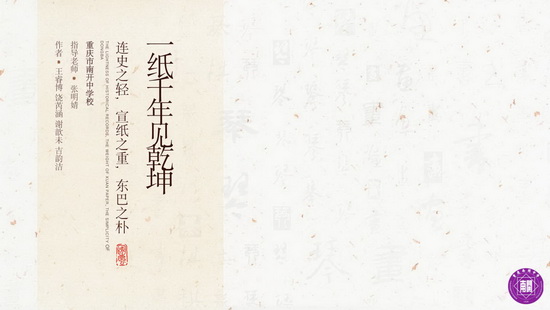 一纸千年见乾坤
连史之轻，宣纸之重，东巴之朴
THE LIGHTNESS OF HISTORICAL RECORDS, THE WEIGHT OF XUAN PAPER, THE SIMPLICITY OF DONGBA
重庆市南开中学校
指导老师 • 张明婧
作者 • 王睿博 饶芮涵 谢歆未 吉韵洁